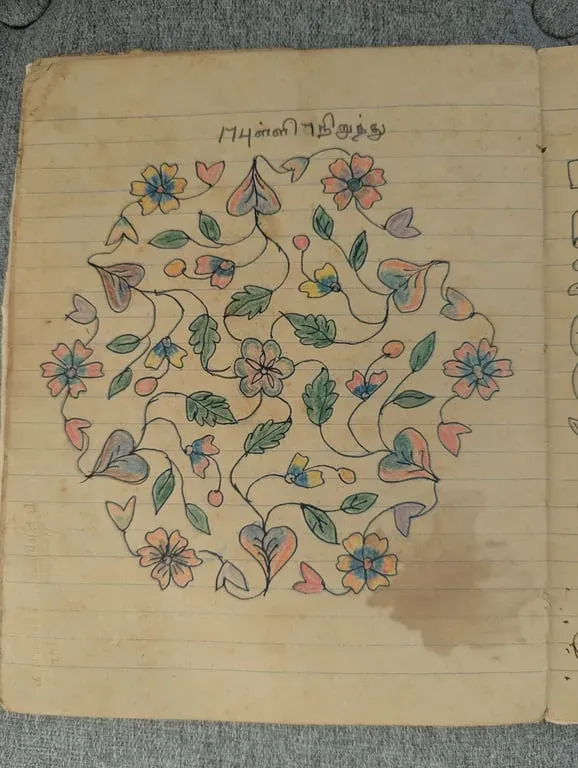 17புள்ளி 7நிறுத்து